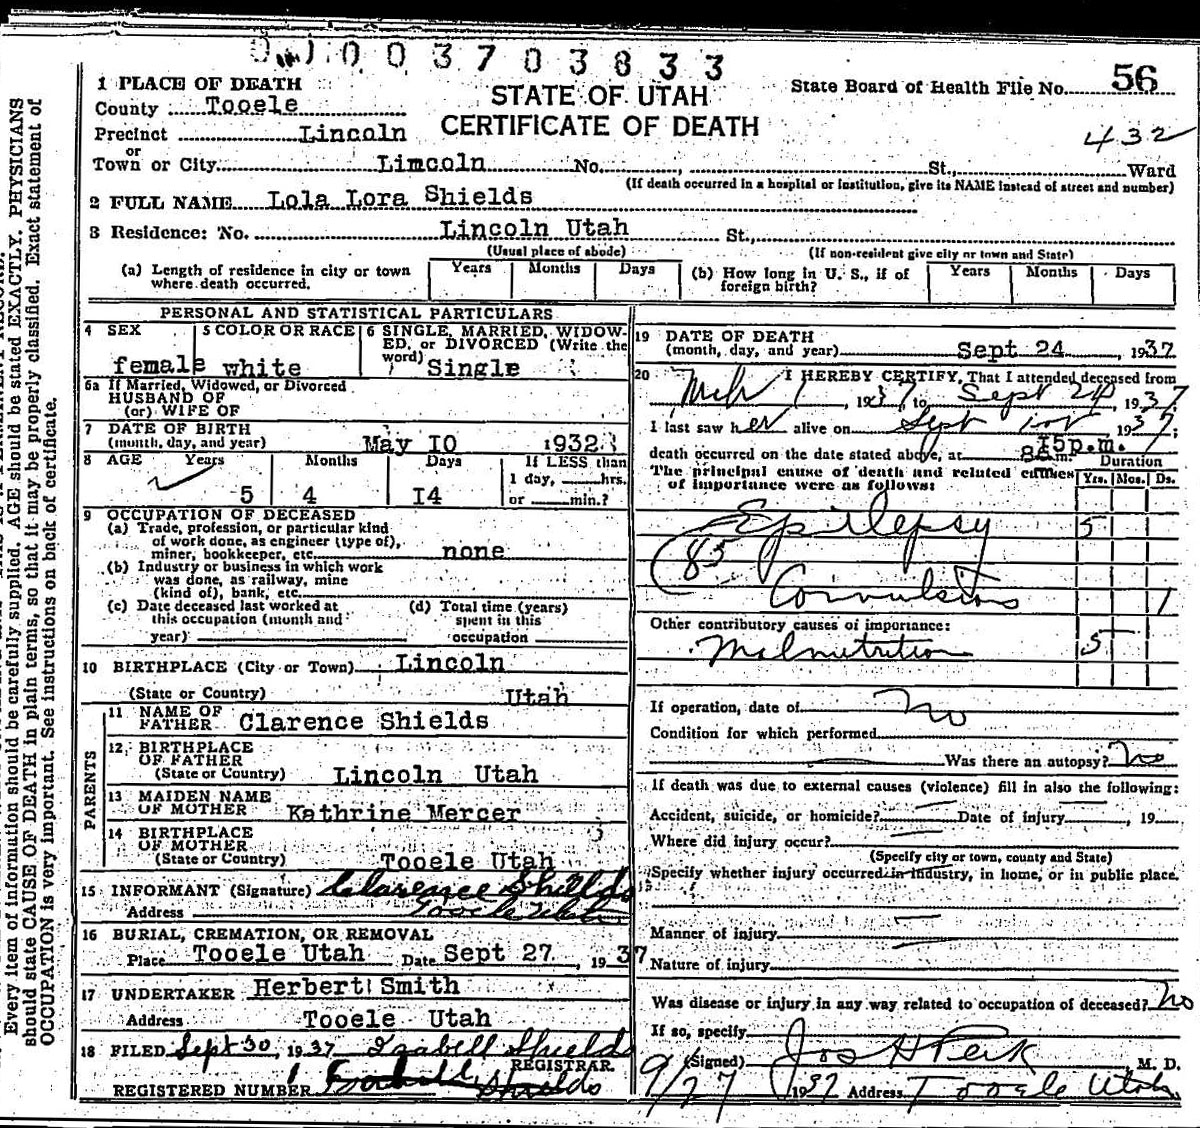 0 0 0 3 7 0 3 8 3 3
1 PLACE OF DEATH
County Tooele
STATE OF UTAH
CERTIFICATE OF DEATH
State Board of Health File No. 56
432
Precinct Lincoln
or
Town or City Limcoln No. , St., Ward
(If death occurred in a hospital or institution, give its NAME instead of street and number)
2 FULL NAME Lola Lora Shields
3 Residence: No. Lincoln Utah St.,
(Usual place of abode) (If non-resident give city or town and State)
(a) Length of residence in city or town where death occurred. Years Months Days (b) How long in U. S., if of foreign birth? Years Months Days
PERSONAL AND STATISTICAL PARTICULARS
4 SEX female
5 COLOR OR RACE white
6 SINGLE, MARRIED, WIDOWED, or DIVORCED (Write the word) Single
6a If Married, Widowed, or Divorced
HUSBAND OF
(or) WIFE OF
7 DATE OF BIRTH
(month, day, and year) May I0 1932
8 AGE Years Months Days If LESS than
1 day, hrs.
5 4 I4 or min.?
9 OCCUPATION OF DECEASED
(a) Trade, profession, or particular kind
of work done, as engineer (type of),
miner, bookkeeper, etc. none
(b) Industry or business in which work
was done, as railway, mine
(kind of), bank, etc.
(c) Date deceased last worked at
this occupation (month and
year)
(d) Total time (years)
spent in this
occupation
10 BIRTHPLACE (City or Town) Lincoln
(State or Country) Utah
PARENTS
11 NAME OF
FATHER Clarence Shields
12 BIRTHPLACE
OF FATHER
(State or Country) Lincoln Utah
13 MAIDEN NAME
OF MOTHER Kathrine Mercer
14 BIRTHPLACE
OF MOTHER
(State or Country) Tooele Utah
15 INFORMANT (Signature) Clarence Shields
Address Tooele Utah
16 BURIAL, CREMATION, OR REMOVAL
Place Tooele Utah Date Sept 27, 1937
17 UNDERTAKER Herbert Smith
Address Tooele Utah
18 FILED Sept 30, 1937 Izabell Shields
REGISTRAR.
REGISTERED NUMBER 1 Shields
19 DATE OF DEATH
(month, day, and year) Sept 24, 1937
20 I HEREBY CERTIFY, That I attended deceased from
Mch 1, 1937, to Sept 24, 1937.
I last saw her alive on Sept 1937;
death occurred on the date stated above, at 8 15p.m. m.
The principal cause of death and related causes
of importance were as follows:
Duration
Yrs. Mos. Ds.
Epilepsy 5
85
Convulsions 1
Other contributory causes of importance:
Malnutrition 5
If operation, date of no
Condition for which performed
Was there an autopsy? no
If death was due to external causes (violence) fill in also the following:
Accident, suicide, or homicide? Date of injury , 19
Where did injury occur?
(Specify city or town, county and State)
Specify whether injury occurred in industry, in home, or in public place.
Manner of injury
Nature of injury
Was disease or injury in any way related to occupation of deceased? no
If so, specify
(Signed) Jos H Peck M. D.
9/27 1937 Address Tooele Utah
Every item of information should be carefully supplied. AGE should be stated EXACTLY. PHYSICIANS
should state CAUSE OF DEATH in plain terms, so that it may be properly classified. Exact statement of
OCCUPATION is very important. See instructions on back of certificate.